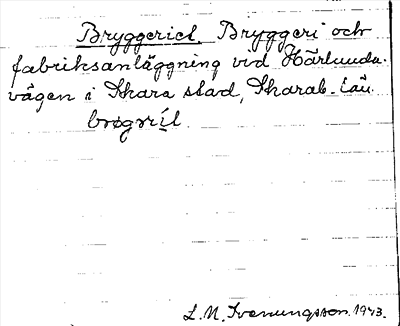 Bryggeriet Bryggeri och
fabriksanläggning vid Härlunda-
vägen i Skara stad, Skarab. län.
brøgríl
L. N. Ivanungsson. 1943.